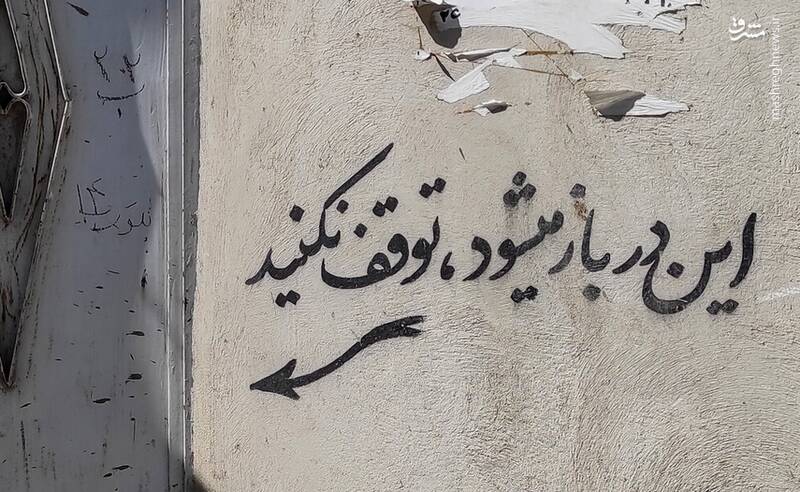 این در باز میشود، توقف نکنید
مشرق
mashreghnews.ir